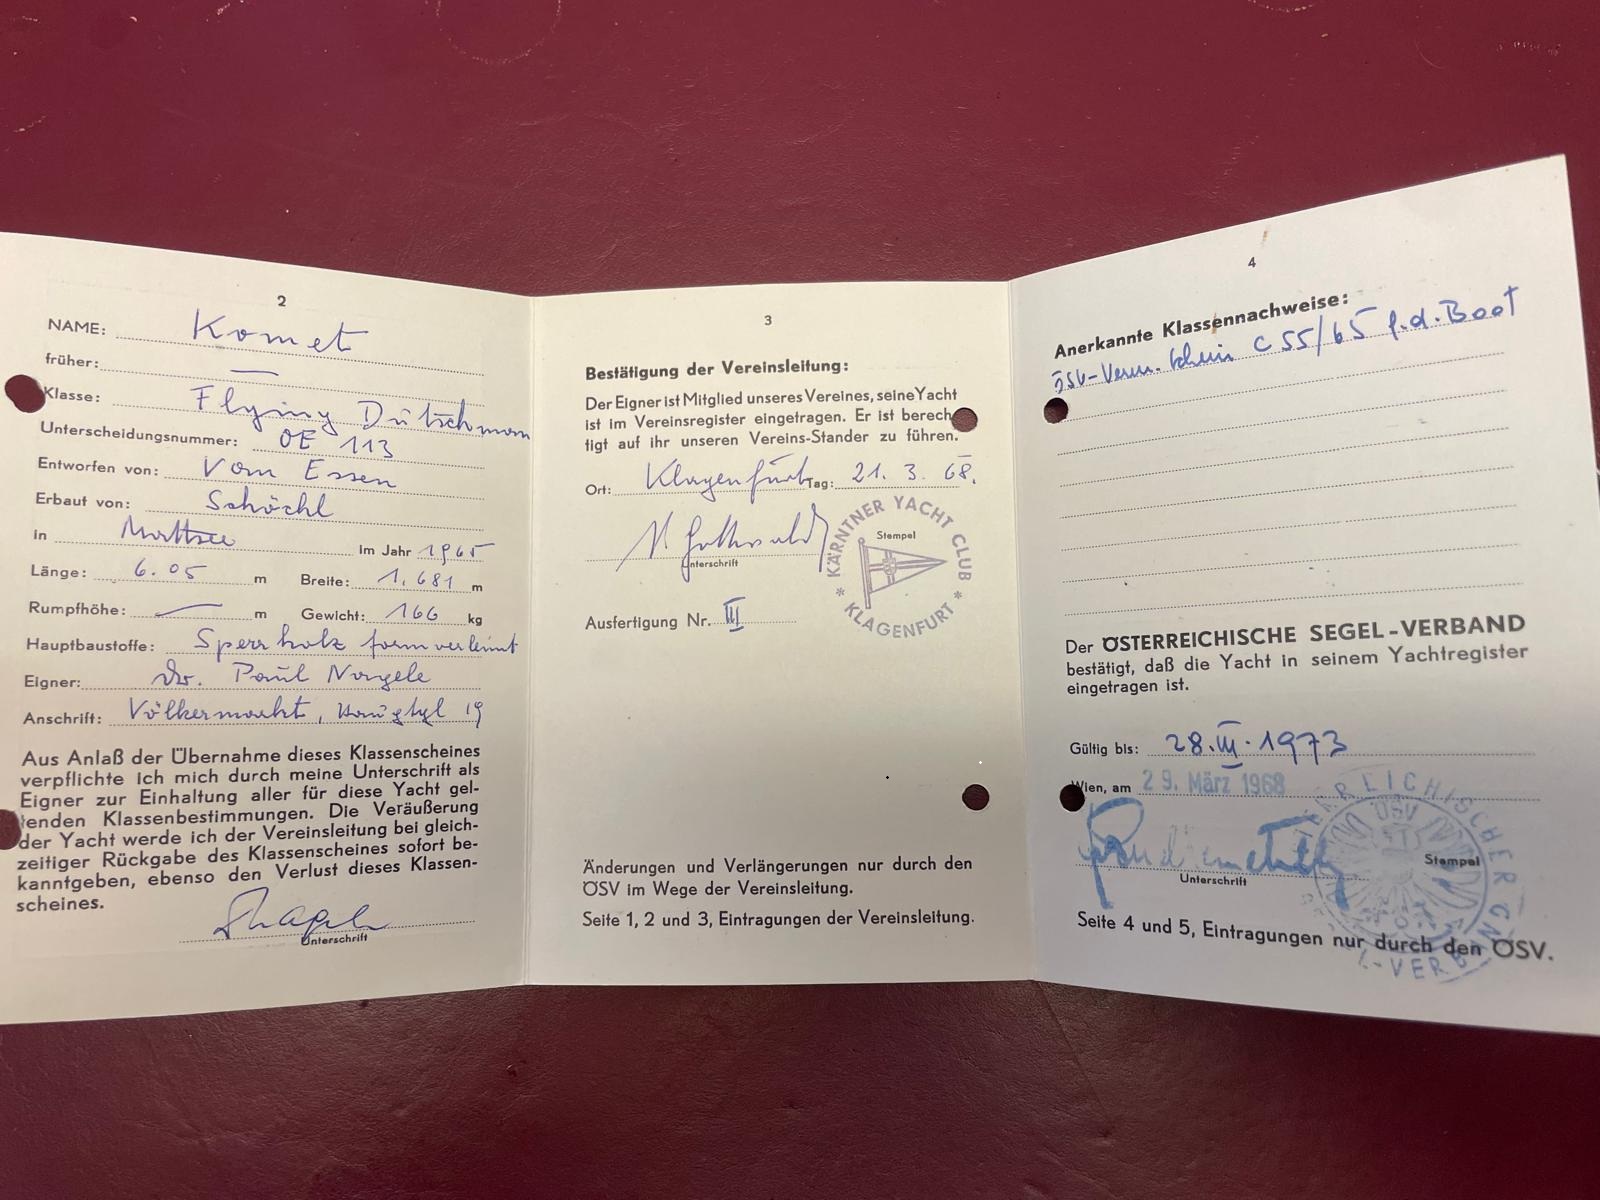 2
NAME: Komet
früher: —
Klasse: Flying Dutschman
Unterscheidungsnummer: OE 113
Entworfen von: Vom Essen
Erbaut von: Schöchl
In Mattsee Im Jahr 1965
Länge: 6.05 m Breite: 1.681 m
Rumpfhöhe: — m Gewicht: 166 kg
Hauptbaustoffe: Sperrholz formverleimt
Eigner: Dr. Paul Nagele
Anschrift: Völkermarkt, 19
Aus Anlaß der Übernahme dieses Klassenscheines
verpflichte ich mich durch meine Unterschrift als
Eigner zur Einhaltung aller für diese Yacht gel-
tenden Klassenbestimmungen. Die Veräußerung
der Yacht werde ich der Vereinsleitung bei gleich-
zeitiger Rückgabe des Klassenscheines sofort be-
kanntgeben, ebenso den Verlust dieses Klassen-
scheines.
Unterschrift
3
Bestätigung der Vereinsleitung:
Der Eigner ist Mitglied unseres Vereines, seine Yacht
ist im Vereinsregister eingetragen. Er ist berech-
tigt auf ihr unseren Vereins-Stander zu führen.
Ort: Klagenfurt Tag: 21. 3. 68.
Stempel
Unterschrift
KÄRNTNER YACHT CLUB
* KLAGENFURT *
Ausfertigung Nr. III
Änderungen und Verlängerungen nur durch den
ÖSV im Wege der Vereinsleitung.
Seite 1, 2 und 3, Eintragungen der Vereinsleitung.
4
Anerkannte Klassennachweise:
ÖSV-Verm. Schein C 55/65 f. d. Boot
Der ÖSTERREICHISCHE SEGEL-VERBAND
bestätigt, daß die Yacht in seinem Yachtregister
eingetragen ist.
Gültig bis: 28. III. 1973
Wien, am 29. März 1968
Stempel
Unterschrift
Seite 4 und 5, Eintragungen nur durch den ÖSV.